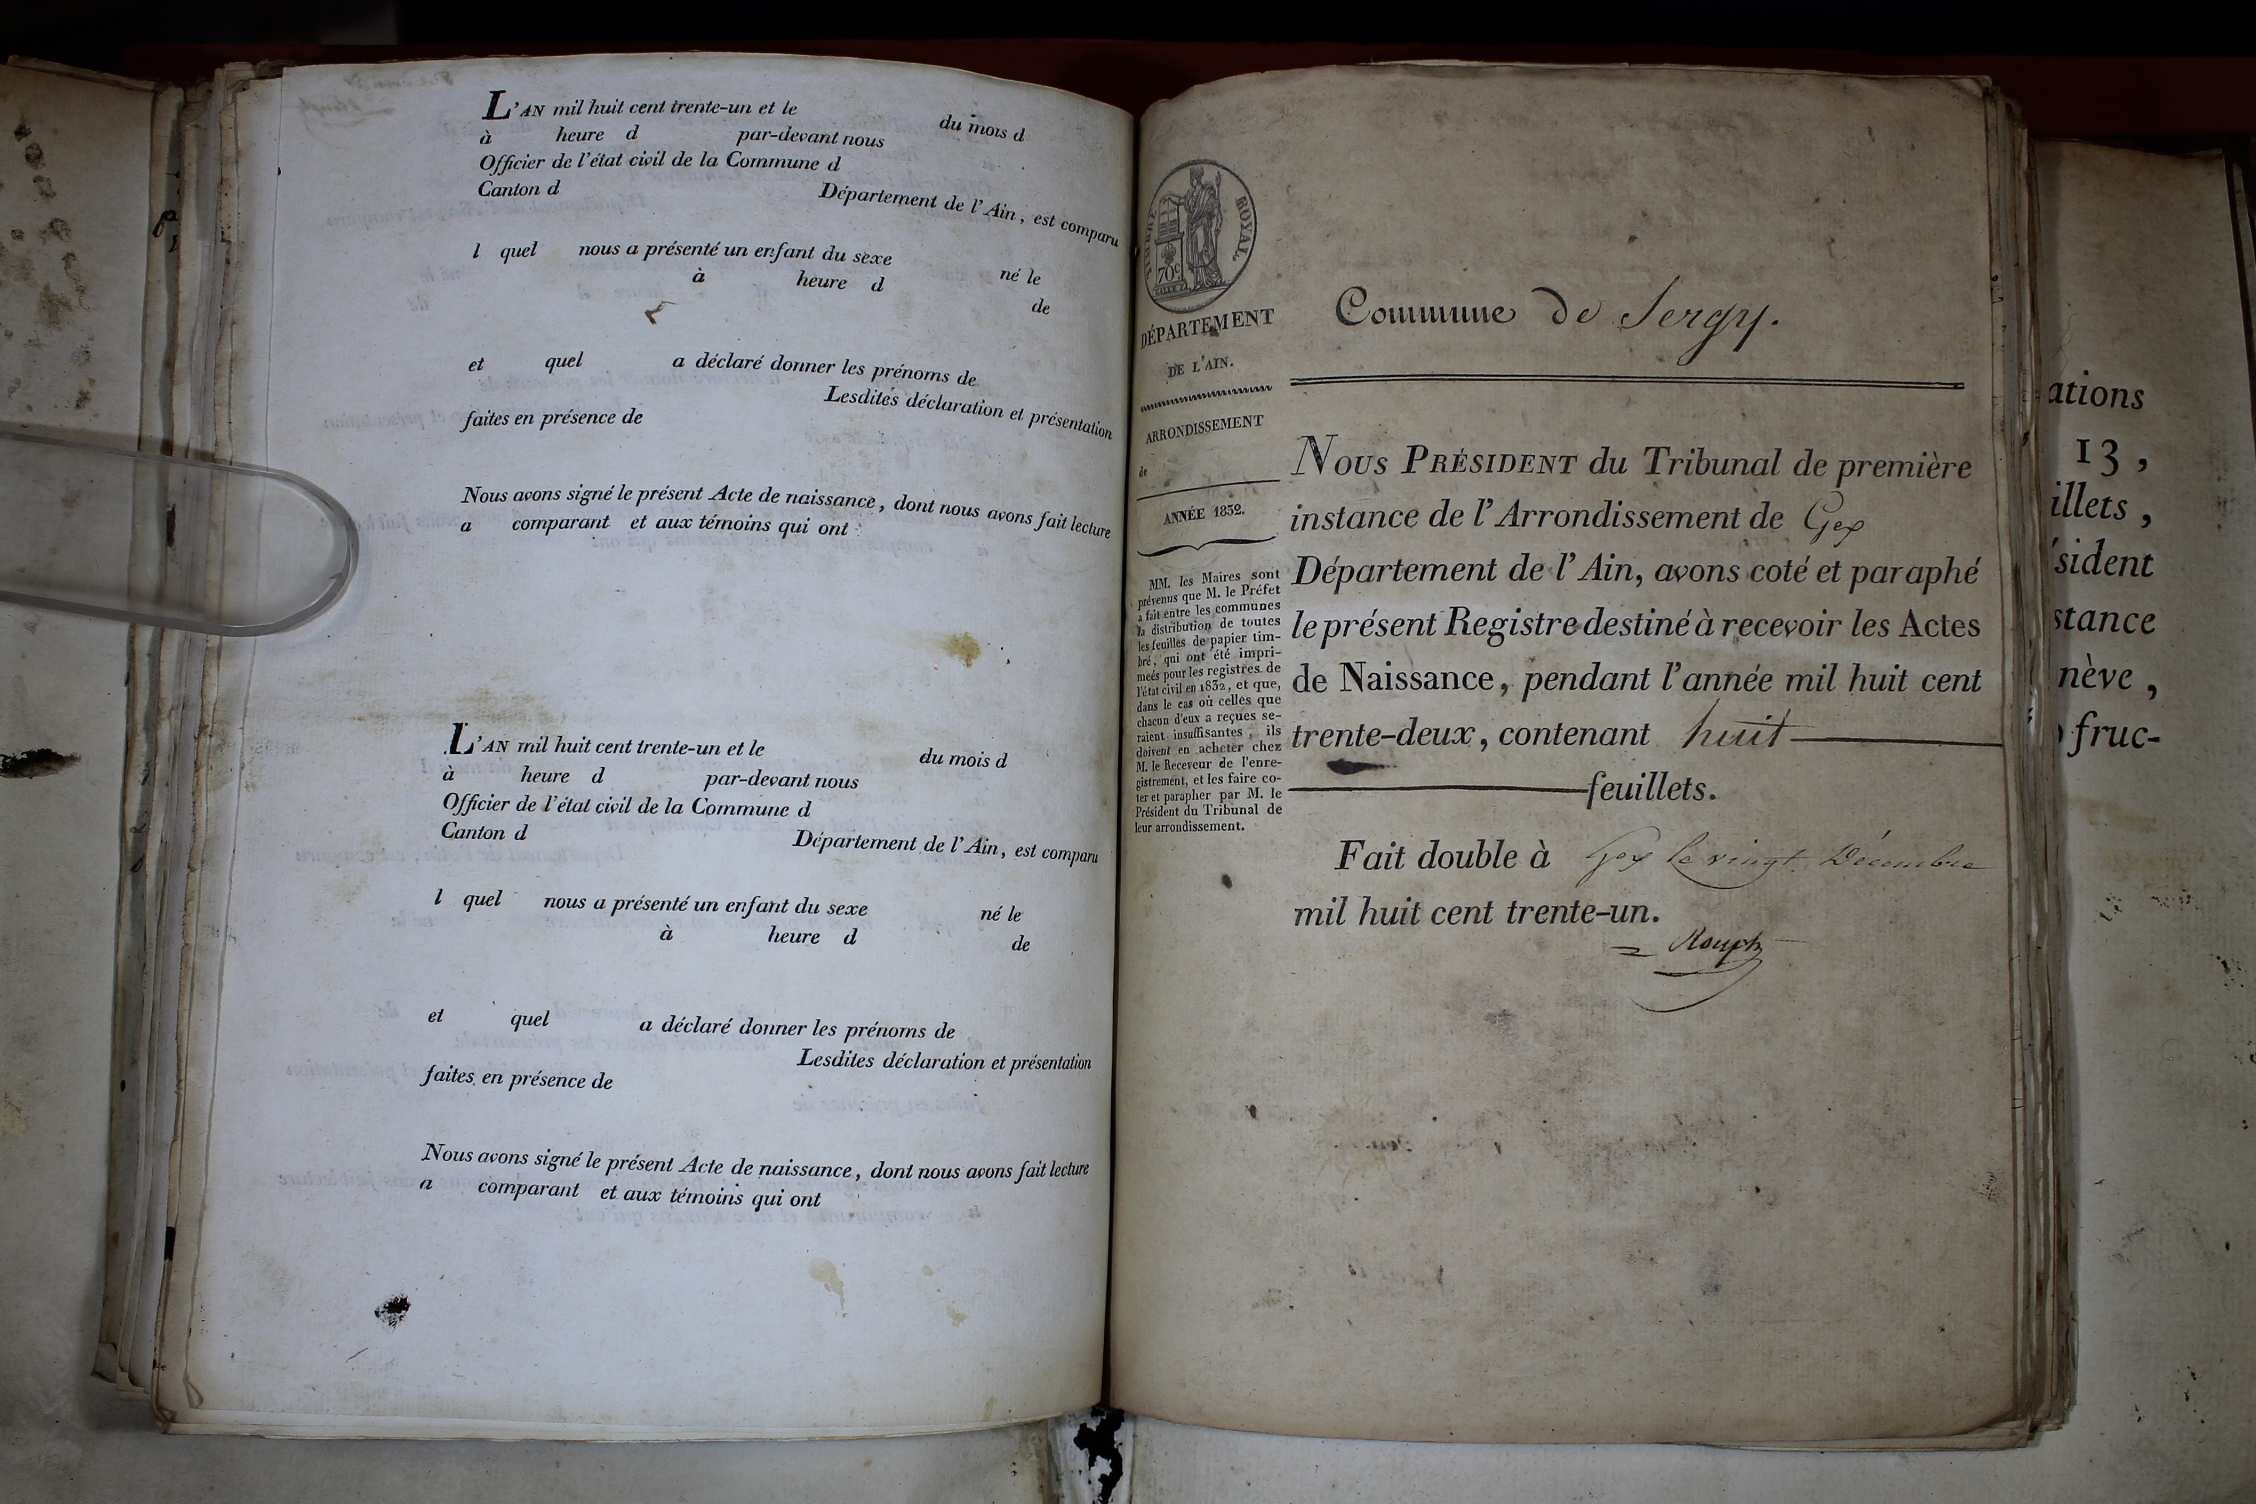 L'AN mil huit cent trente-un et le du mois d
à heure d par-devant nous
Officier de l'état civil de la Commune d
Canton d Département de l'Ain, est comparu
l quel nous a présenté un enfant du sexe né le
à heure d de
et quel a déclaré donner les prénoms de
Lesdites déclaration et présentation
faites en présence de
Nous avons signé le présent Acte de naissance, dont nous avons fait lecture
a comparant et aux témoins qui ont
L'AN mil huit cent trente-un et le du mois d
à heure d par-devant nous
Officier de l'état civil de la Commune d
Canton d Département de l'Ain, est comparu
l quel nous a présenté un enfant du sexe né le
à heure d de
et quel a déclaré donner les prénoms de
Lesdites déclaration et présentation
faites en présence de
Nous avons signé le présent Acte de naissance, dont nous avons fait lecture
a comparant et aux témoins qui ont
TIMBRE ROYAL
70c
DÉPARTEMENT
DE L'AIN.
ARRONDISSEMENT
de
ANNÉE 1832.
MM. les Maires sont
prévenus que M. le Préfet
a fait entre les communes
la distribution de toutes
les feuilles de papier tim-
bré, qui ont été impri-
meés pour les registres de
l'état civil en 1832, et que,
dans le cas où celles que
chacun d'eux a reçues se-
raient insuffisantes, ils
doivent en acheter chez
M. le Receveur de l'enre-
gistrement, et les faire co-
ter et parapher par M. le
Président du Tribunal de
leur arrondissement.
Commune de Sergy.
NOUS PRÉSIDENT du Tribunal de première
instance de l'Arrondissement de Gex
Département de l'Ain, avons coté et paraphé
le présent Registre destiné à recevoir les Actes
de Naissance, pendant l'année mil huit cent
trente-deux, contenant huit
feuillets.
Fait double à Gex le vingt Décembre
mil huit cent trente-un.
ations
13,
illets,
sident
stance
nève,
fruc-